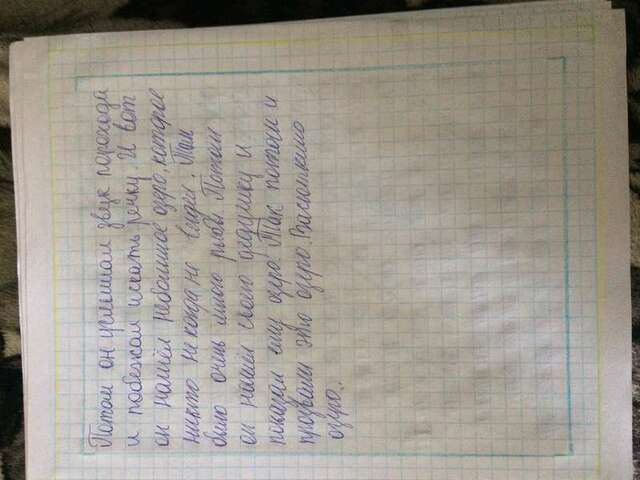 Потом он услышал звук парохода
и побежал искать речку. И вот
он нашёл небольшое озеро, которое
никто не когда не видел. Там
было очень много рыбы. Потом
он нашёл своего дедушку и
показал ему озеро. Так потом и
прозвали это озеро. Васюткино
озеро.